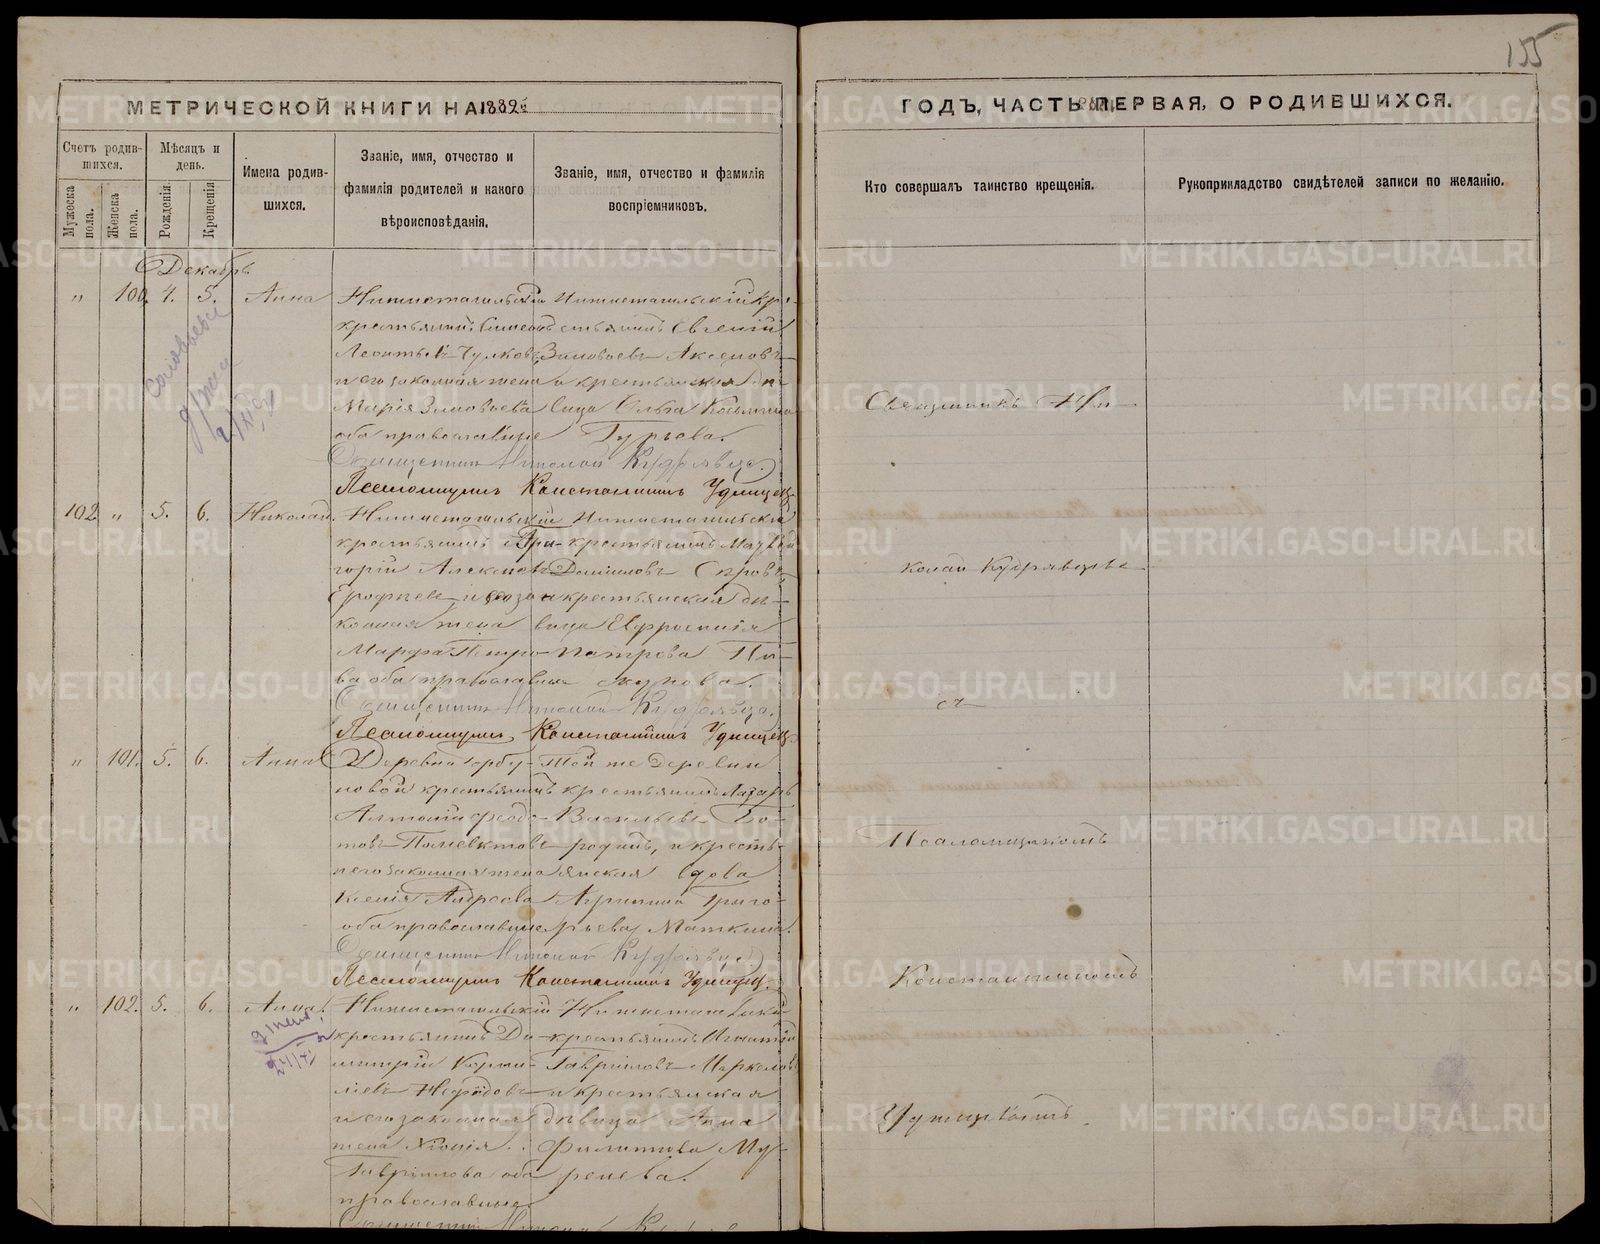 155
МЕТРИЧЕСКОЙ КНИГИ НА 1882й
ГОДЪ, ЧАСТЬ ПЕРВАЯ, О РОДИВШИХСЯ.
Счетъ родив-
шихся.
Мужеска пола.
Женска пола.
Мѣсяцъ и день.
Рожденія.
Крещенія
Имена родив-
шихся.
Званіе, имя, отчество и
фамилія родителей и какого
вѣроисповѣданія.
Званіе, имя, отчество и фамилія
воспріемниковъ.
Кто совершалъ таинство крещенія.
Рукоприкладство свидѣтелей записи по желанію.
Декабрь
" 100. 4. 5. Анна
Нижнетагильскій
крестьянинъ Симеонъ
Леонтьевъ Чулковъ
и его законная жена
Марія Зиновьева
оба православные
Нижнетагильскій кре-
стьянинъ Евгеній
Зиновьевъ Аксеновъ
и крестьянская дѣ-
вица Ольга Козьмина
Гурьева.
Священникъ Николай Кудрявцев
Псаломщикъ Константинъ Удинцевъ
102 " 5. 6. Николай.
Нижнетагильскій
крестьянинъ Гри-
горій Алексѣевъ
Ерофѣевъ и его за-
конная жена
Марфа Петро-
ва оба православные
Нижнетагильскій
крестьянинъ Матвей
Даниловъ
и крестьянская дѣ-
вица Евфросинія
Петрова Пи-
скунова.
Священникъ Николай Кудрявцев
Псаломщикъ Константинъ Удинцевъ
" 101. 5. 6. Анна
Деревни Горбу-
новой крестьянинъ
Антоній Ѳеодо-
товъ Полиевктовъ
и его законная жена
Ксенія Андреева
оба православные
Той же деревни
крестьянинъ Лазарь
Васильевъ Бо-
родинъ, и кресть-
янская вдова
Агрипина Григо-
рьева Маткина.
Священникъ Николай Кудрявцев
Псаломщикъ Константинъ Удинцевъ
" 102. 5. 6. Анна
Нижнетагильскій
крестьянинъ Ди-
митрій Корни-
лієвъ Нефёдовъ
и его законная
жена Хіонія
Гавріилова оба
православные
Нижнетагильскій
крестьянинъ Игнатій
Гавріиловъ Меркуловъ
и крестьянская
дѣвица Анна
Филиппова Му-
ренева.
Священникъ Николай Кудрявцев
Священникъ Ни-
колай Кудрявцевъ
съ
Псаломщикомъ
Константиномъ
Удинцевымъ
METRIKI.GASO-URAL.RU